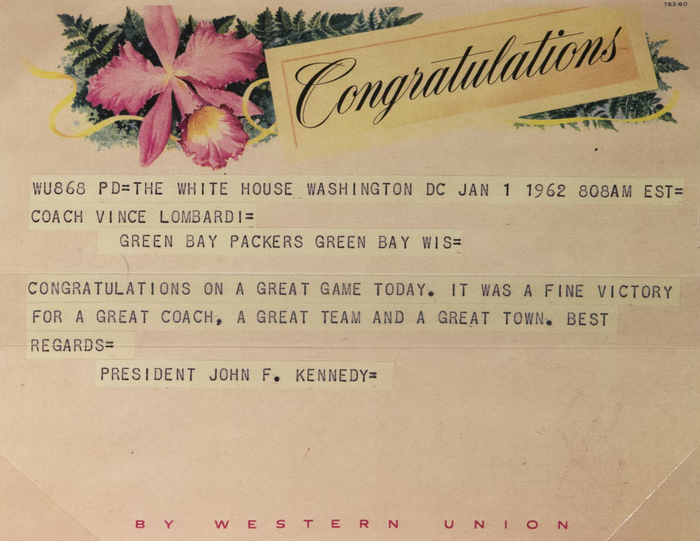 763-60
Congratulations
WU868 PD=THE WHITE HOUSE WASHINGTON DC JAN 1 1962 808AM EST=
COACH VINCE LOMBARDI=
GREEN BAY PACKERS GREEN BAY WIS=
CONGRATULATIONS ON A GREAT GAME TODAY. IT WAS A FINE VICTORY
FOR A GREAT COACH, A GREAT TEAM AND A GREAT TOWN. BEST
REGARDS=
PRESIDENT JOHN F. KENNEDY=
BY WESTERN UNION